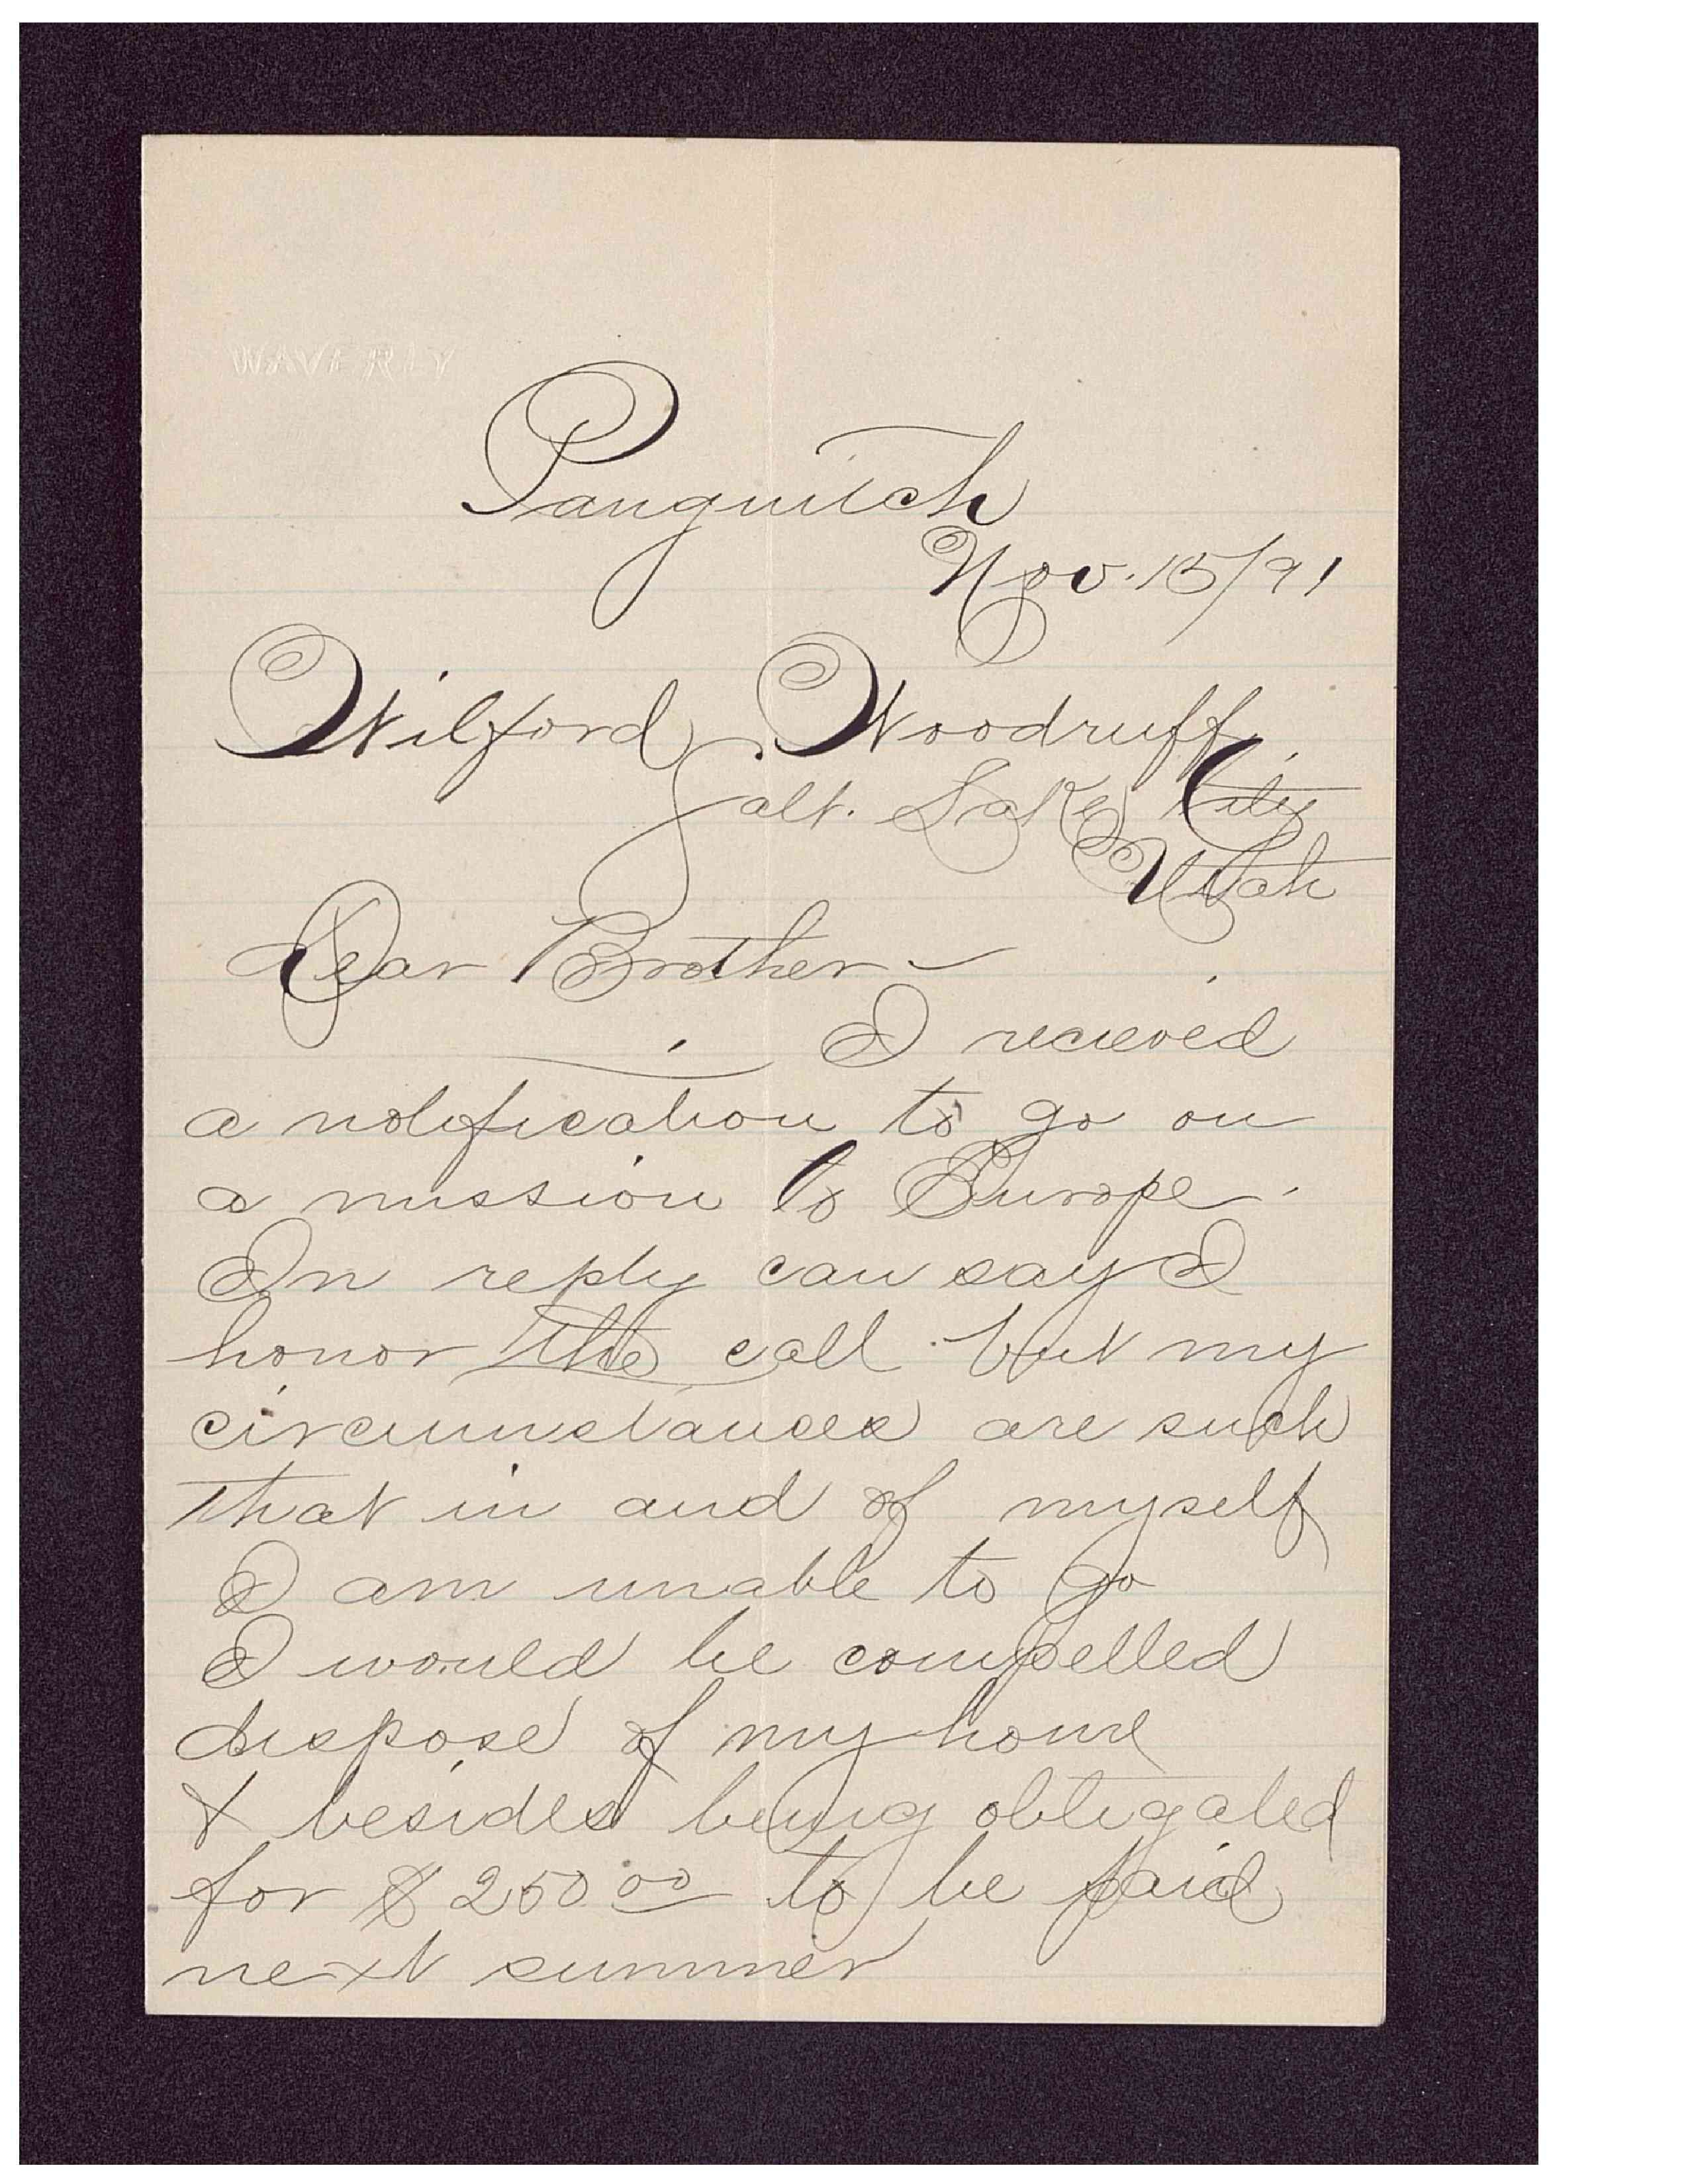 WAVERLY
Panguitch
Nov. 15/91
Wilford Woodruff.
Salt. Lake City
Utah
Dear Brother -
I recieved
a notification to go on
a mission to Europe.
In reply can say I
honor the call but my
circumstances are such
that in and of myself
I am unable to go
I would be compelled
dispose of my home
& besides being obligated
for $250.00 to be paid
next summer